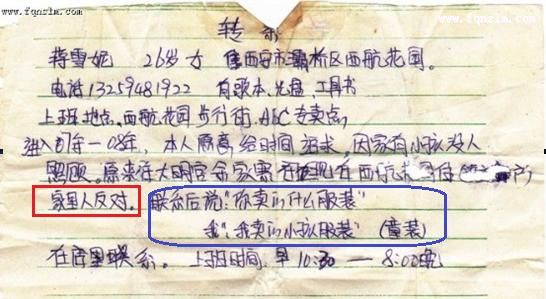 www.fqnzlm.com
www.fqnzlm.com
转
蒋雪妮 26岁 女 住西安市灞桥区西航花园。
电话13259481922 有歌本、光盘、工具书
上班地点、西航花园步行街、ABC专卖点,
进入07年一08年, 本人原意, 给时间追求, 因家有小孩没人
照顾。原来在大明宫
家里人反对. 联系后说:"你卖的什么服装"
我:"我卖的小孩服装" (童装)
在店里联系. 上班时间. 早10:30 — 8:00晚